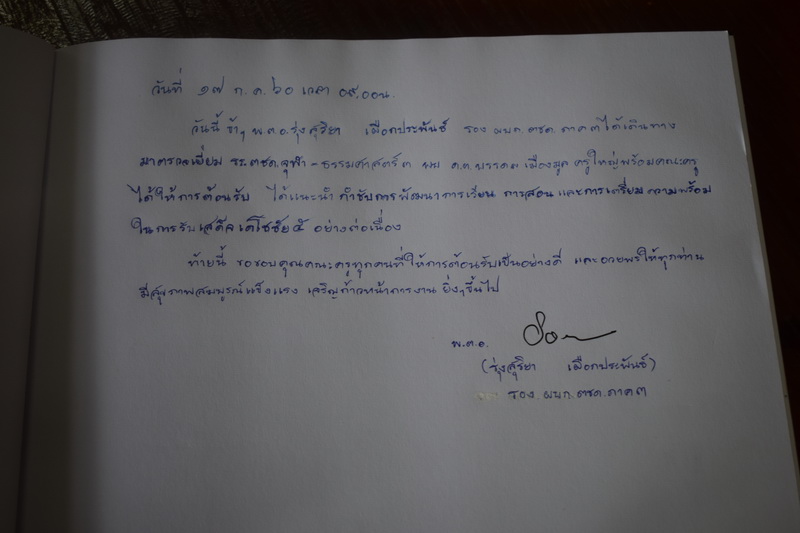 วันที่ ๑๗ ก.ค. ๖๐ เวลา ๐๙.๐๐น.
วันนี้ ข้าฯ พ.ต.อ.รุ่งสุริยา เผือกประพันธ์ รอง ผบก.ตชด.ภาค๓ ได้เดินทาง
มาตรวจเยี่ยม รร.ตชด.จุฬา-ธรรมศาสตร์๓ พบ ด.ต. เมืองมูล ครูใหญ่พร้อมคณะครู
ได้ให้การต้อนรับ ได้แนะนำ กำชับการพัฒนาการเรียน การสอนและการเตรียมความพร้อม
ในการรับเสด็จ อย่างต่อเนื่อง
ท้ายนี้ ขอขอบคุณคณะครูทุกคนที่ให้การต้อนรับเป็นอย่างดี และอวยพรให้ทุกท่าน
มีสุขภาพสมบูรณ์แข็งแรง เจริญก้าวหน้าการงาน ยิ่งๆขึ้นไป
พ.ต.อ.
(รุ่งสุริยา เผือกประพันธ์)
รอง ผบก.ตชด.ภาค๓